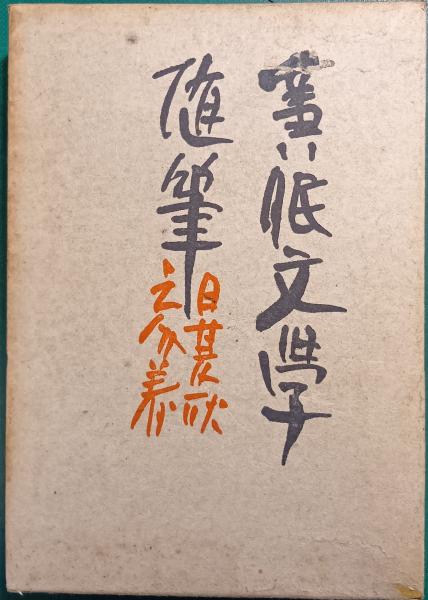 黄眠文學
随筆
日夏耿
之介著